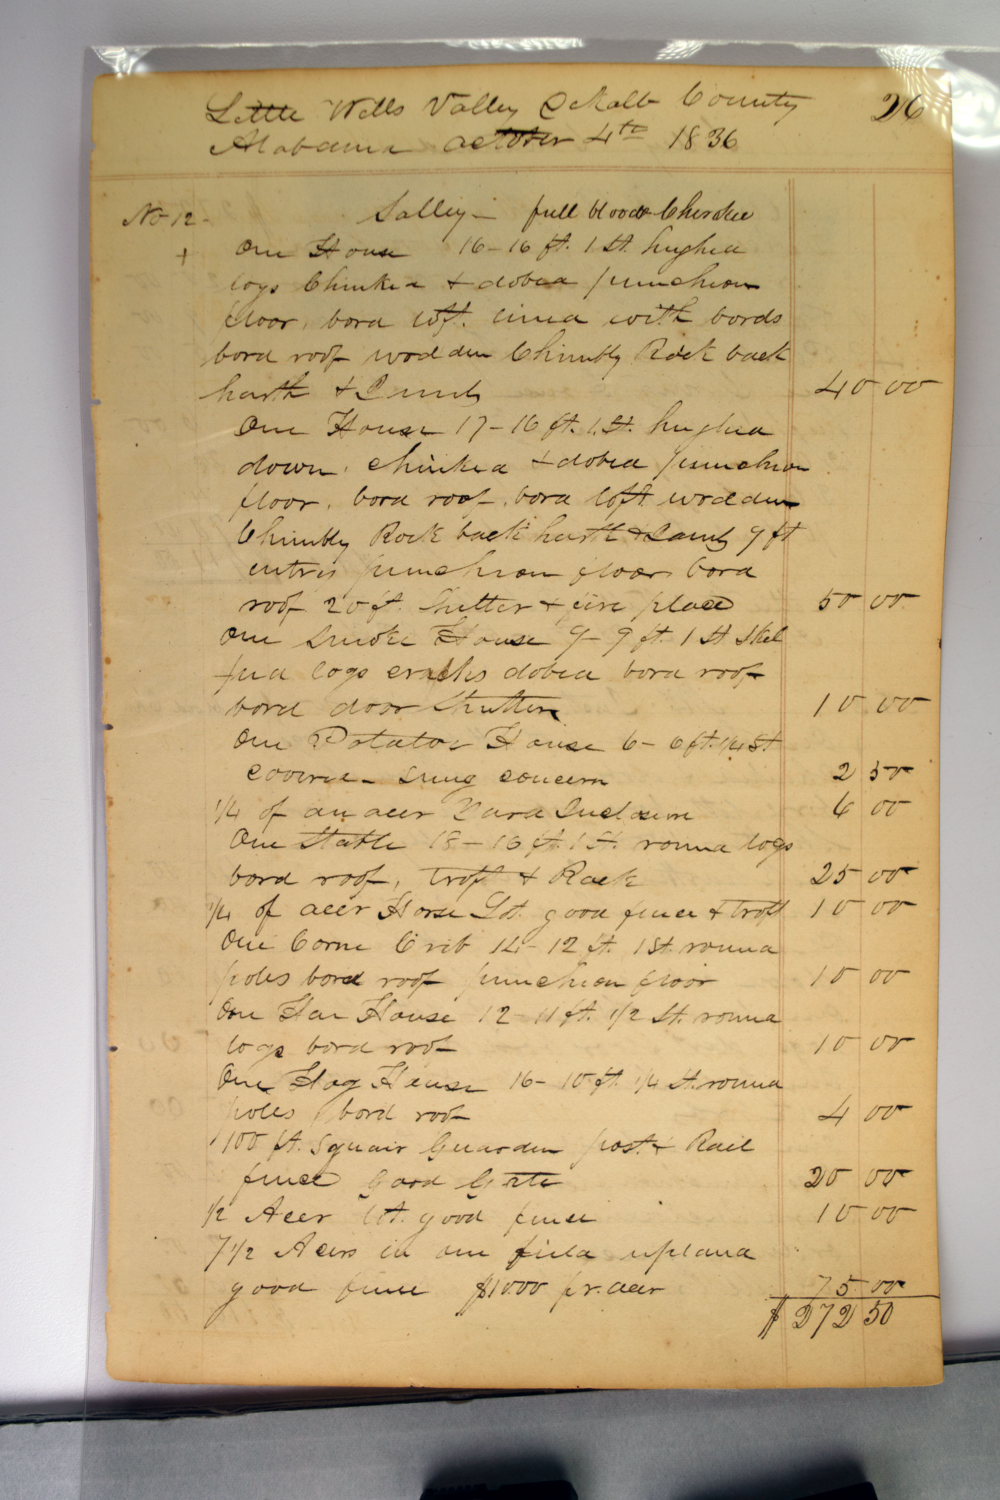 Little Wills Valley DeKalb County 26
Alabama october 4th 1836
No 12 - Salley - full blood Cherokee
+ One House 16-16 ft. 1 St. hughed
logs Chinked & dobed puncheon
floor, bord loft. lined with bords
bord roof wooden Chimbly Rock back
harth & Jambs 40 00
One House 17-16 ft. 1 St. hughed
down, chinked & dobed puncheon
floor, bord roof, bord loft wooden
Chimbly Rock back harth & Jambs 9 ft
entris puncheon floor bord
roof 20 ft. Shetter & fire place 50 00
One Smoke House 9-9 ft. 1 St Skel
ped logs cracks dobed bord roof
bord door Shutter 10 00
One Potatoe House 6-6 ft. 1/4 St
covered - snug concern 2 50
1/4 of an acer Yard Inclosure 6 00
One Stable 18-16 ft. 1 St. round logs
bord roof, troft & Rack 25 00
3/4 of acer Horse Lot. good fence & troft 10 00
One Corne Crib 14-12 ft. 1 St round
poles bord roof puncheon floor 10 00
One House 12-11 ft. 1/2 St. round
logs bord roof 10 00
One Hog House 16-10 ft. 1/4 St. round
poles bord roof 4 00
100 ft. Squair Guarden post & Rail
fence good Gate 20 00
1/2 Acer lot. good fence 10 00
7 1/2 Acers in one field upland
good fence $10 00 pr. acer 75 00
$ 272 50